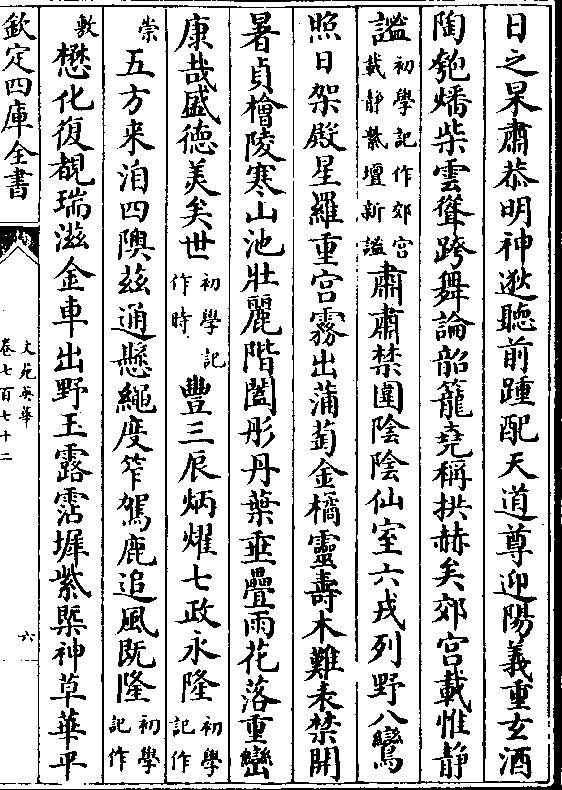 日之杲肅恭明神逖聽前踵配天道尊迎陽義重玄酒
陶匏燔柴雲聳跨舞論韶籠堯稱拱赫矣郊宫載惟靜
謐初學記作郊宫載靜紫壇新謐肅肅禁圍陰陰仙室六戎列野八鸞
照日架殿星羅重宫霧出蒲萄金橘靈壽木難未禁開
暑貞檜陵寒山池壯麗階闥彤丹葉垂疊雨花落重巒
康哉盛德美矣世初學記作時豐三辰炳耀七政永隆初學記作
崇五方来洎四隩兹通懸繩度笮駕鹿追風既隆初學記作
敷懋化復覩瑞滋金車出野玉露霑墀紫㮣神草華平
欽定四庫全書
文苑英華
卷七百七十二
六